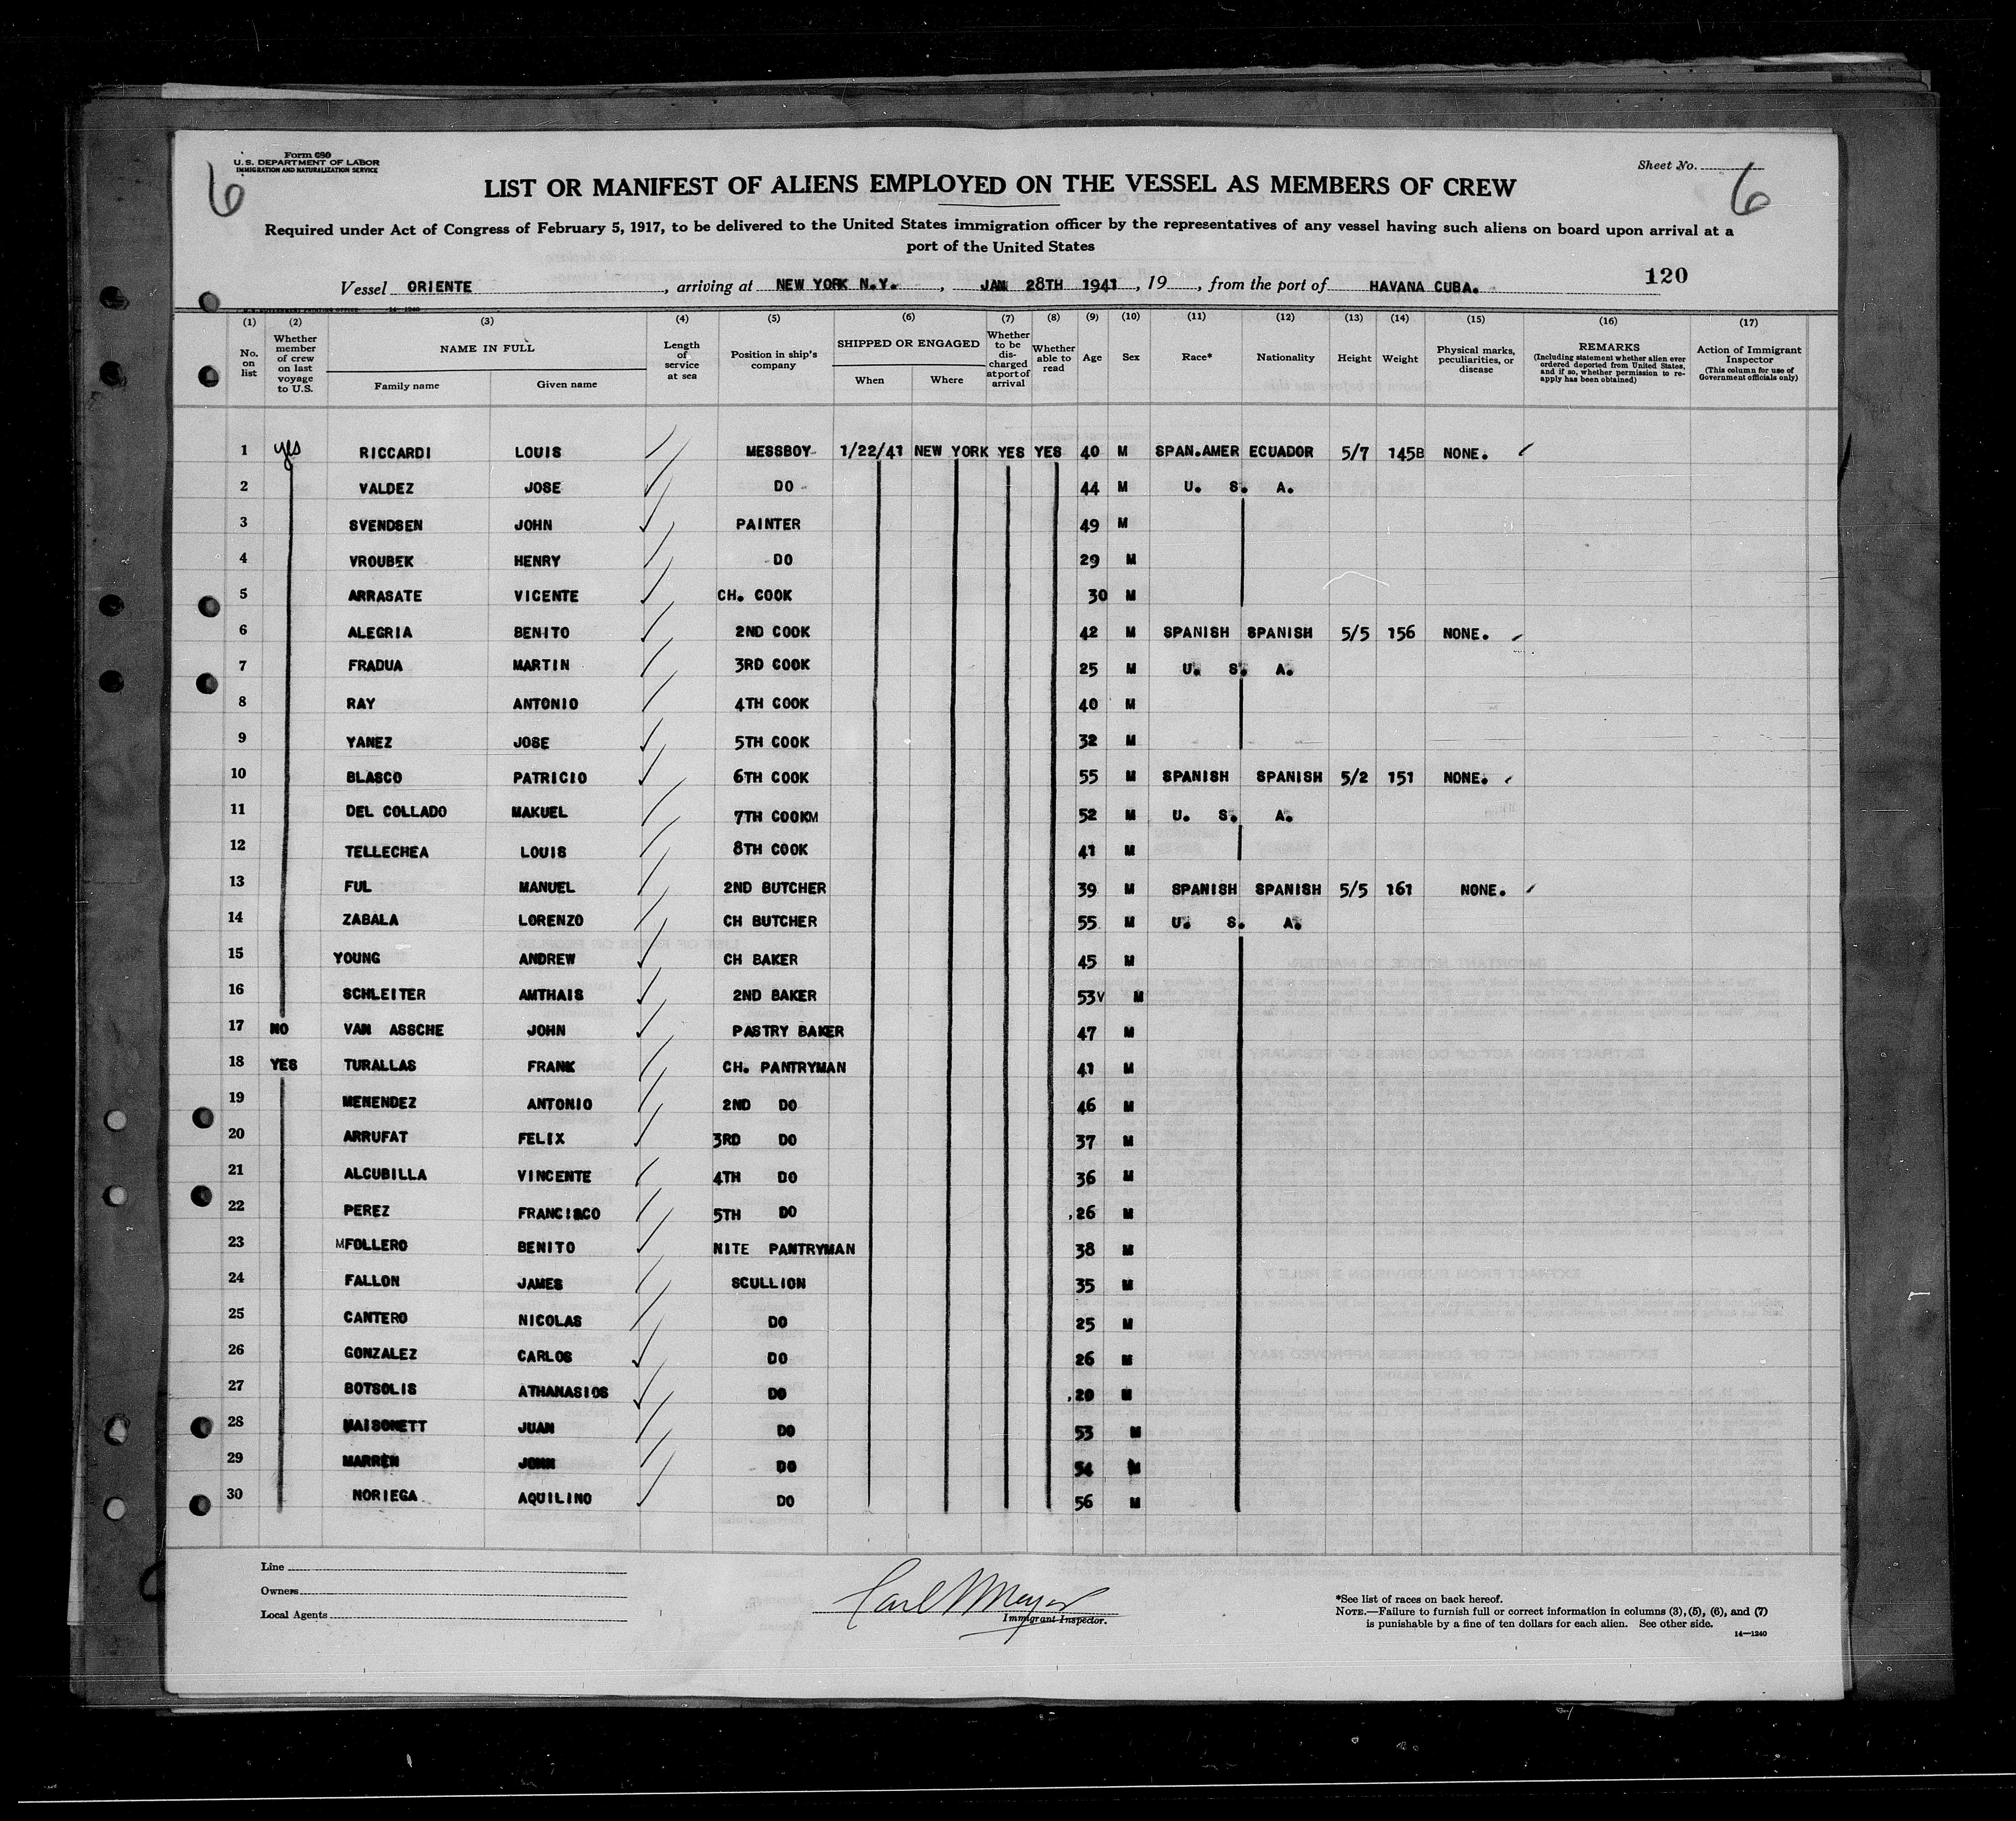 Form 680
U. S. DEPARTMENT OF LABOR
IMMIGRATION AND NATURALIZATION SERVICE
6
Sheet No. 6
LIST OR MANIFEST OF ALIENS EMPLOYED ON THE VESSEL AS MEMBERS OF CREW
Required under Act of Congress of February 5, 1917, to be delivered to the United States immigration officer by the representatives of any vessel having such aliens on board upon arrival at a
port of the United States
120
Vessel ORIENTE, arriving at NEW YORK N.Y., JAN 28TH 1941, 19, from the port of HAVANA CUBA.
14-1240
(1) No. on list
(2) Whether member of crew on last voyage to U.S.
(3) NAME IN FULL Family name Given name
(4) Length of service at sea
(5) Position in ship's company
(6) SHIPPED OR ENGAGED When Where
(7) Whether to be discharged at port of arrival
(8) Whether able to read
(9) Age
(10) Sex
(11) Race*
(12) Nationality
(13) Height
(14) Weight
(15) Physical marks, peculiarities, or disease
(16) REMARKS (Including statement whether alien ever ordered deported from United States, and if so, whether permission to re-apply has been obtained)
(17) Action of Immigrant Inspector (This column for use of Government officials only)
1 yes RICCARDI LOUIS MESSBOY 1/22/41 NEW YORK YES YES 40 M SPAN.AMER ECUADOR 5/7 145B NONE.
2 VALDEZ JOSE DO 44 M U. S. A.
3 SVENDSEN JOHN PAINTER 49 M
4 VROUBEK HENRY DO 29 M
5 ARRASATE VICENTE CH. COOK 30 M
6 ALEGRIA BENITO 2ND COOK 42 M SPANISH SPANISH 5/5 156 NONE.
7 FRADUA MARTIN 3RD COOK 25 M U. S. A.
8 RAY ANTONIO 4TH COOK 40 M
9 YANEZ JOSE 5TH COOK 32 M
10 BLASCO PATRICIO 6TH COOK 55 M SPANISH SPANISH 5/2 151 NONE.
11 DEL COLLADO MAKUEL 7TH COOKM 52 M U. S. A.
12 TELLECHEA LOUIS 8TH COOK 41 M
13 FUL MANUEL 2ND BUTCHER 39 M SPANISH SPANISH 5/5 161 NONE.
14 ZABALA LORENZO CH BUTCHER 55 M U. S. A.
15 YOUNG ANDREW CH BAKER 45 M
16 SCHLEITER AMTHAIS 2ND BAKER 53V M
17 NO VAN ASSCHE JOHN PASTRY BAKER 47 M
18 YES TURALLAS FRANK CH. PANTRYMAN 41 M
19 MENENDEZ ANTONIO 2ND DO 46 M
20 ARRUFAT FELIX 3RD DO 37 M
21 ALCUBILLA VINCENTE 4TH DO 36 M
22 PEREZ FRANCISCO 5TH DO 26 M
23 MFOLLERO BENITO NITE PANTRYMAN 38 M
24 FALLON JAMES SCULLION 35 M
25 CANTERO NICOLAS DO 25 M
26 GONZALEZ CARLOS DO 26 M
27 BOTSOLIS ATHANASIOS DO 20 M
28 MAISONETT JUAN DO 53 M
29 MARREN JOHN DO 54 M
30 NORIEGA AQUILINO DO 56 M
Line
Owners
Local Agents
Carl Meyer
Immigrant Inspector.
*See list of races on back hereof.
NOTE.—Failure to furnish full or correct information in columns (3), (5), (6), and (7)
is punishable by a fine of ten dollars for each alien. See other side.
14—1240